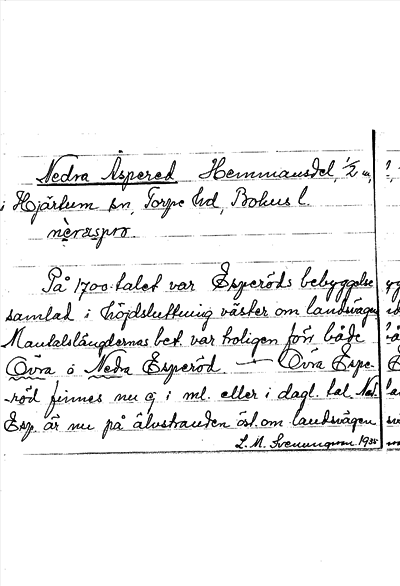 Nedra Äspered Hemmansdel, 1/2 m,
i Hjärtum sn, Torpe hd, Bohus l.
nèræspro.
På 1700-talet var Esperöds bebyggelse
samlad i höjdsluttning väster om landsvägen
Mantalslängdernas bet. var troligen för både
Övra o Nedra Esperöd — Övra Espe-
-röd finnes nu ej i ml. eller i dagl. tal. Ned.
Esp. är nu på älvstranden öst. om landsvägen
L. M. Svenungsson 1935